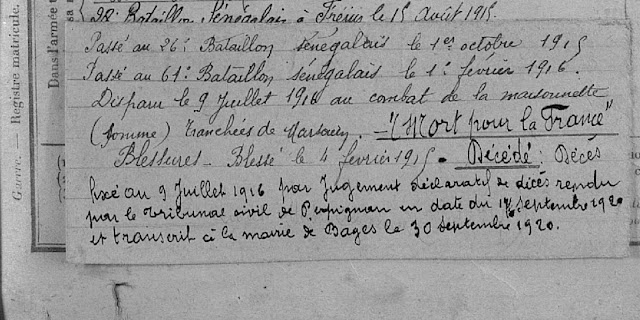 Bataillon Sénégalais à Fréjus le 15 Août 1915.
Passé au 26e Bataillon sénégalais le 1er octobre 1915
Passé au 61e Bataillon sénégalais le 1er février 1916.
Disparu le 9 Juillet 1916 au combat de la maisonnette
(Somme) Tranchées de . — "Mort pour la France"
Blessures — Blessé le 4 février 1915. Décédé : Décès
fixé au 9 Juillet 1916 par Jugement déclaratif de décès rendu
par le tribunal civil de Perpignan en date du septembre 1920
et transcrit à la mairie de Bages le 30 septembre 1920.
Guerre. — Registre matricule.
Dans l'armée